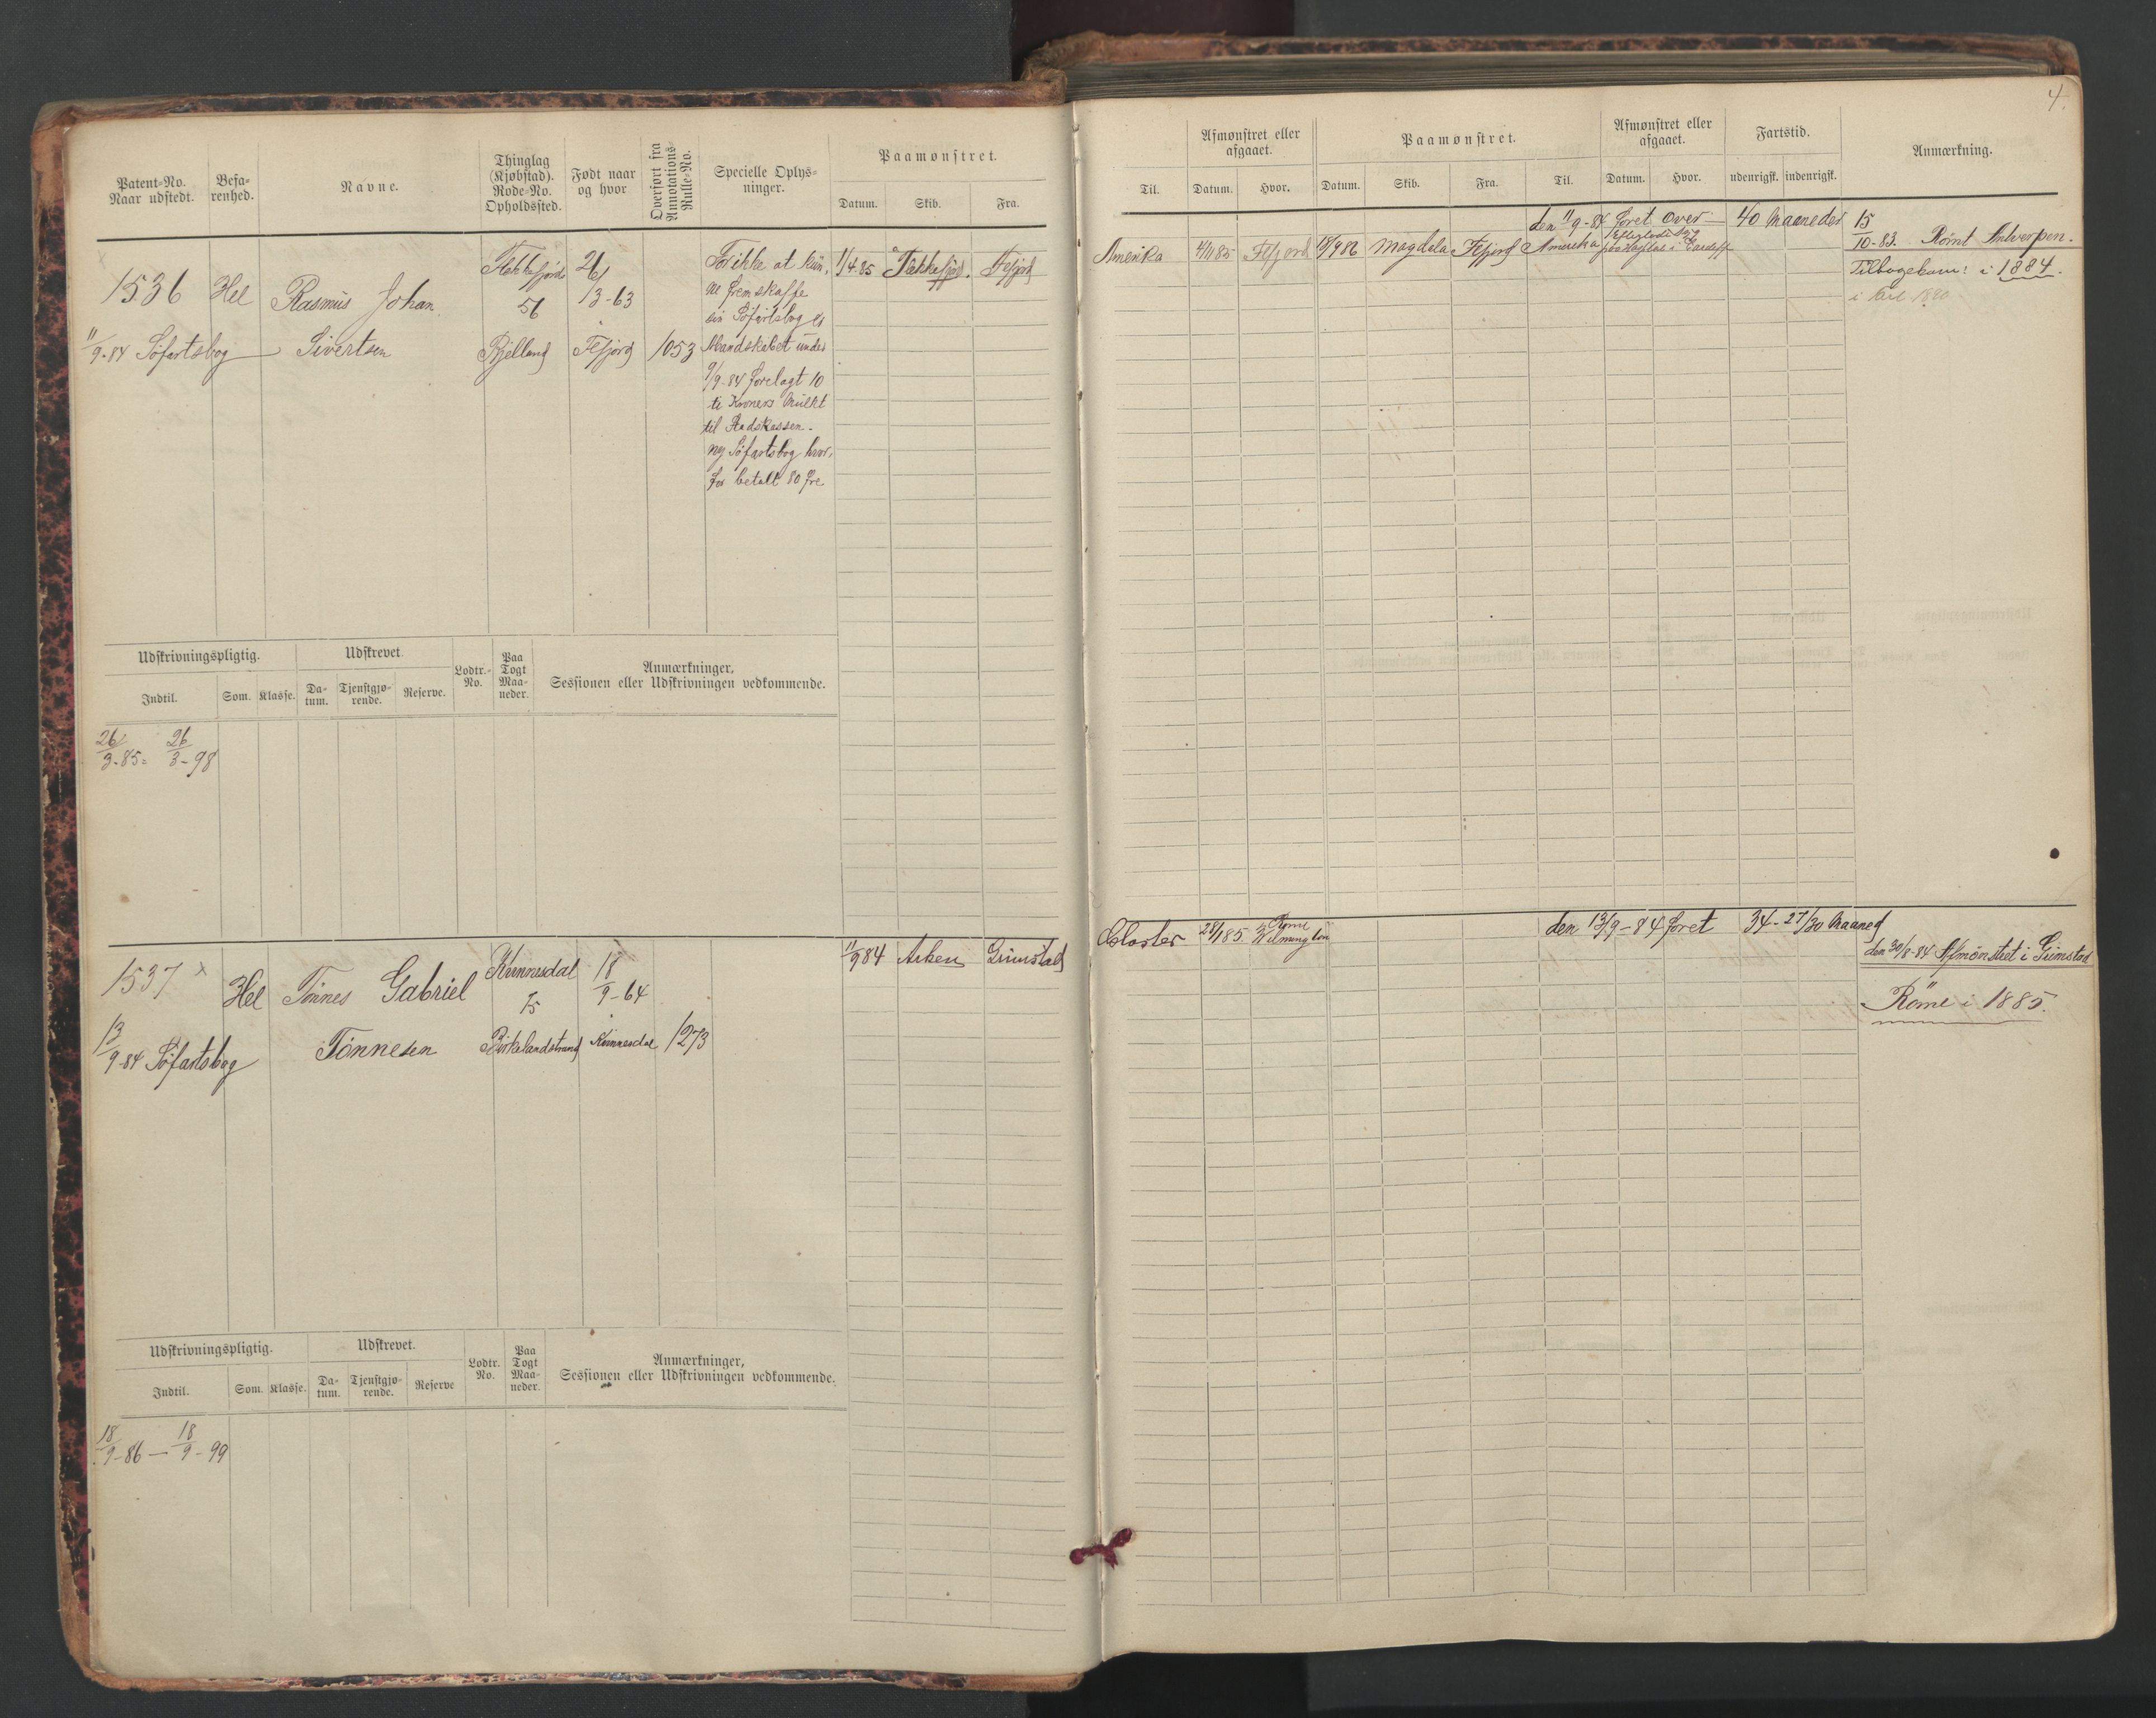 4.
Patent-No. Naar udstedt.
Befa-renhed.
Navne.
Thinglag (Kjøbstad). Rode-No. Opholdssted.
Født naar og hvor
Overført fra Annotations-Rulle-No.
Specielle Oplys-ninger.
Paamønstret.
Datum. Skib. Fra.
Til.
Afmønstret eller afgaaet.
Datum. Hvor.
Paamønstret.
Datum. Skib. Fra. Til.
Afmønstret eller afgaaet.
Datum. Hvor.
Fartstid.
udenrigsk. indenrigsk.
Anmærkning.
1536 Hel Rasmus Johan
Sivertsen
11/9-84 Søfartsbog
Flekkefjord
56
Fjelland
26/3-63
Flfjord
1053
For ikke at kun-
ne fremskaffe
sin Søfartsbog er
Mandskabet under
9/9-84 forelagt 10
ti Kroners Mulkt
til Stadskassen.
ny Søfartsbog hvor-
for betalt 80 Øre
1/4 85 Flekkefjord. Flfjord
Amerika 4/11 85 Flfjord 18/9 86 Magdala Flfjord Amerika
den 11/9-84 foret over 40 Maaneder
i Cardiff
15/10-83. Rømt Antwerpen.
Tilbagekom: i 1884.
Udskrivningspligtig.
Indtil. Som. Klasse.
Udskrevet.
Da-tum. Tjenstgjø-rende. Reserve.
Lodtr.-No.
Paa Togt Maa-neder.
Anmærkninger,
Sessionen eller Udskrivningen vedkommende.
26/3-85= 26/3-98
1537 x Hel Tønnes Gabriel
Tønnesen
13/9-84 Søfartsbog
Kvinnesdal
75
Birkelandstrand
18/9-64
Kvinnesdal
1273
11/9 84 Arken Grimstad
Closter 28/1 85 Rømt Wilmington
den 13/9-84 foret 34-27/30 Maaned
den 30/8-84 Afmønstret i Grimstad
Rømt i 1885.
Udskrivningspligtig.
Indtil. Som. Klasse.
Udskrevet.
Da-tum. Tjenstgjø-rende. Reserve
Lodtr. No.
Paa Togt Maa-neder.
Anmærkninger,
Sessionen eller Udskrivningen vedkommende.
18/9-86 — 18/9-99